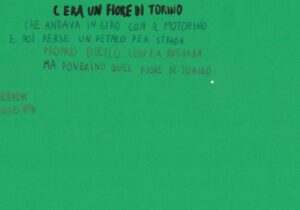 C'ERA UN FIORE DI TORINO
CHE ANDAVA IN GIRO CON IL MOTORINO
E POI PERSE UN PETALO PER STRADA
PROPRIO QUELLO CON LA RUGIADA
MA POVERINO QUEL FIORE DI TORINO